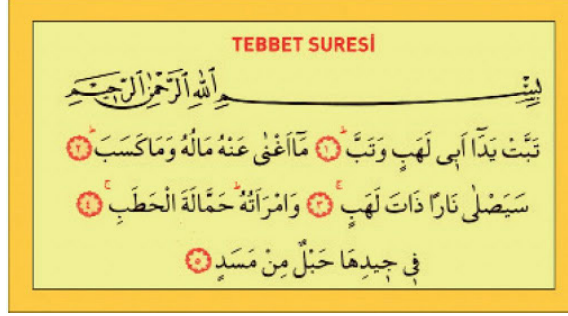 TEBBET SURESİ
بِسْمِ اللّٰهِ الرَّحْمٰنِ الرَّحِيمِ
تَبَّتْ يَدَٓا اَبٖى لَهَبٍ وَتَبَّۜ ﴿١﴾ مَٓا اَغْنٰى عَنْهُ مَالُهُ وَمَا كَسَبَۜ ﴿٢﴾
سَيَصْلٰى نَارًا ذَاتَ لَهَبٍۚ ﴿٣﴾ وَامْرَاَتُهُۜ حَمَّالَةَ الْحَطَبِۚ ﴿٤﴾
فٖى جٖيدِهَا حَبْلٌ مِنْ مَسَدٍ ﴿٥﴾